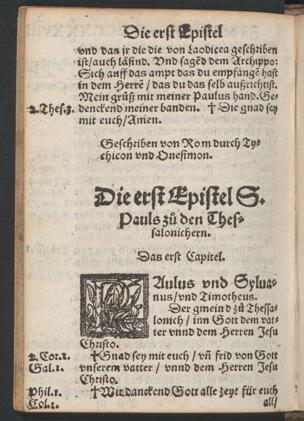 Die erst Epistel
vnd das ir die die von Laodicea geschriben
ist/auch läsind. Vnd sagẽd dem Archippo:
Sich auff das ampt das du empfangẽ hast
in dem Herrẽ/ das du das selb außrichtist.
Mein grůß mit meiner Paulus hand. Ge-
2.Thes.3. denckend meiner banden. ☨ Die gnad sey
mit euch/Amen.
Geschriben von Rom durch Ty-
chicon vnd Onesimon.
Die erst Epistel S.
Pauls zů den Thes-
salonichern.
Das erst Capitel.
PAulus vnd Sylua-
nus/vnd Timotheus.
Der gmeind zů Thessa-
lonich / inn Gott dem vat-
ter vnnd dem Herren Jesu
Christo.
2.Cor.1. ☨Gnad sey mit euch / vñ frid von Gott
Gal.1. vnserem vatter / vnnd dem Herren Jesu
Christo.
Phil.1. ☨Wir danckend Gott alle zeyt für euch
Col.1. all/